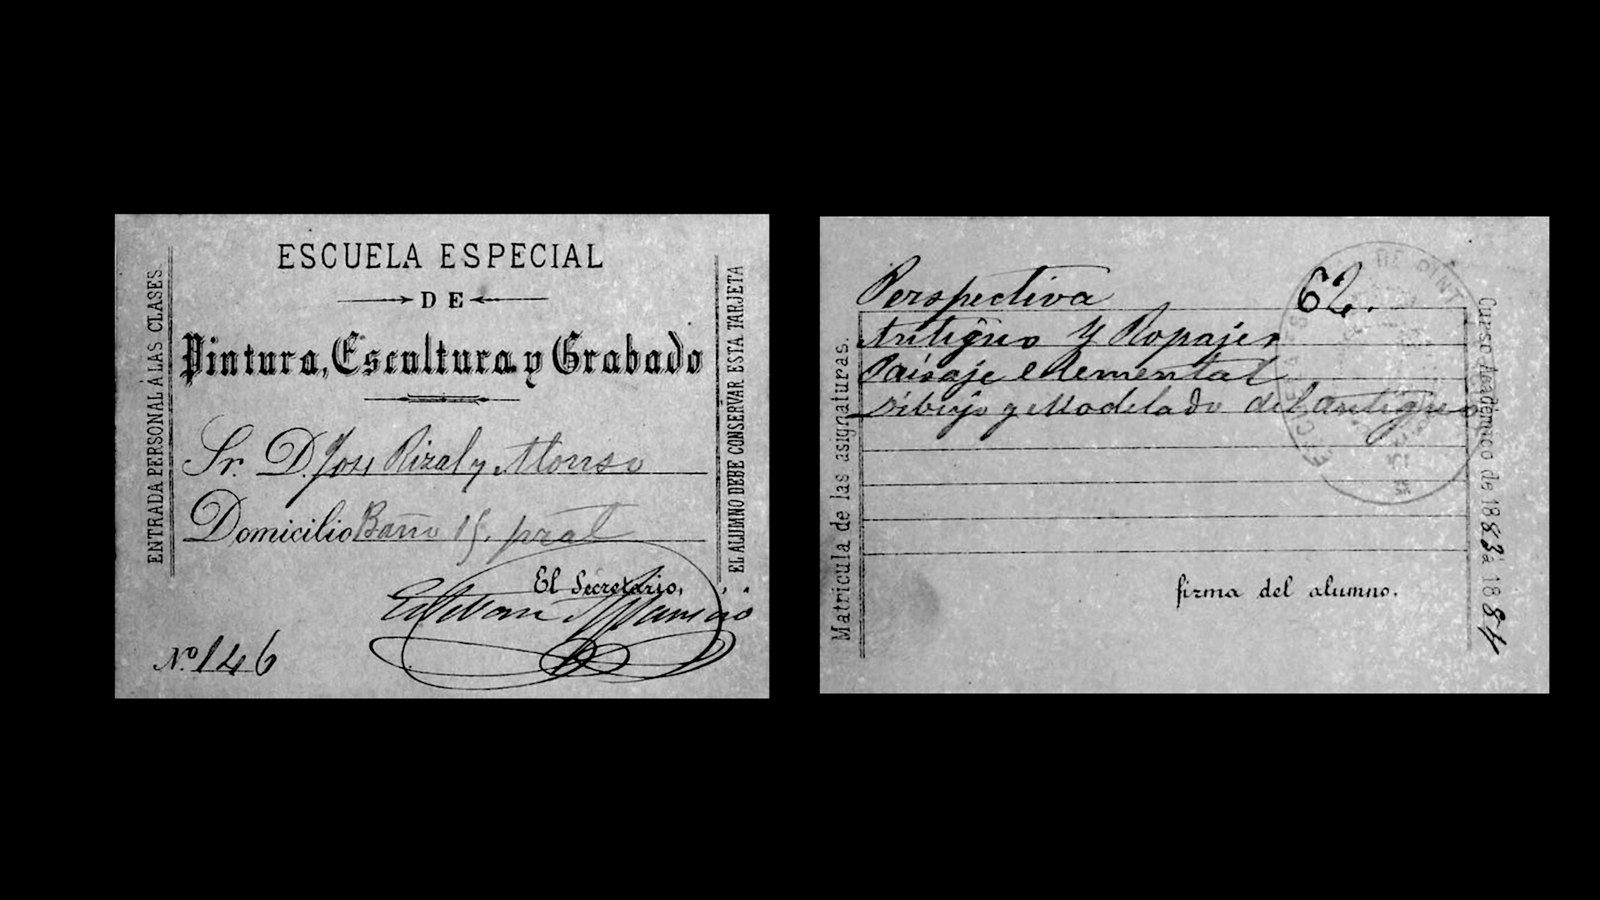 ESCUELA ESPECIAL
DE
Pintura, Escultura y Grabado
Sr. D. Jose Rizal y Alonso
Domicilio Baño 15, pral
El Secretario,
Esteban
Nº 146
ENTRADA PERSONAL Á LAS CLASES.
EL ALUMNO DEBE CONSERVAR ESTA TARJETA
Perspectiva 62.
Antiguo y Ropajes
Paisaje elemental
Dibujo y Modelado del antiguo
firma del alumno.
Matricula de las asignaturas.
Curso Académico de 1883 á 1884